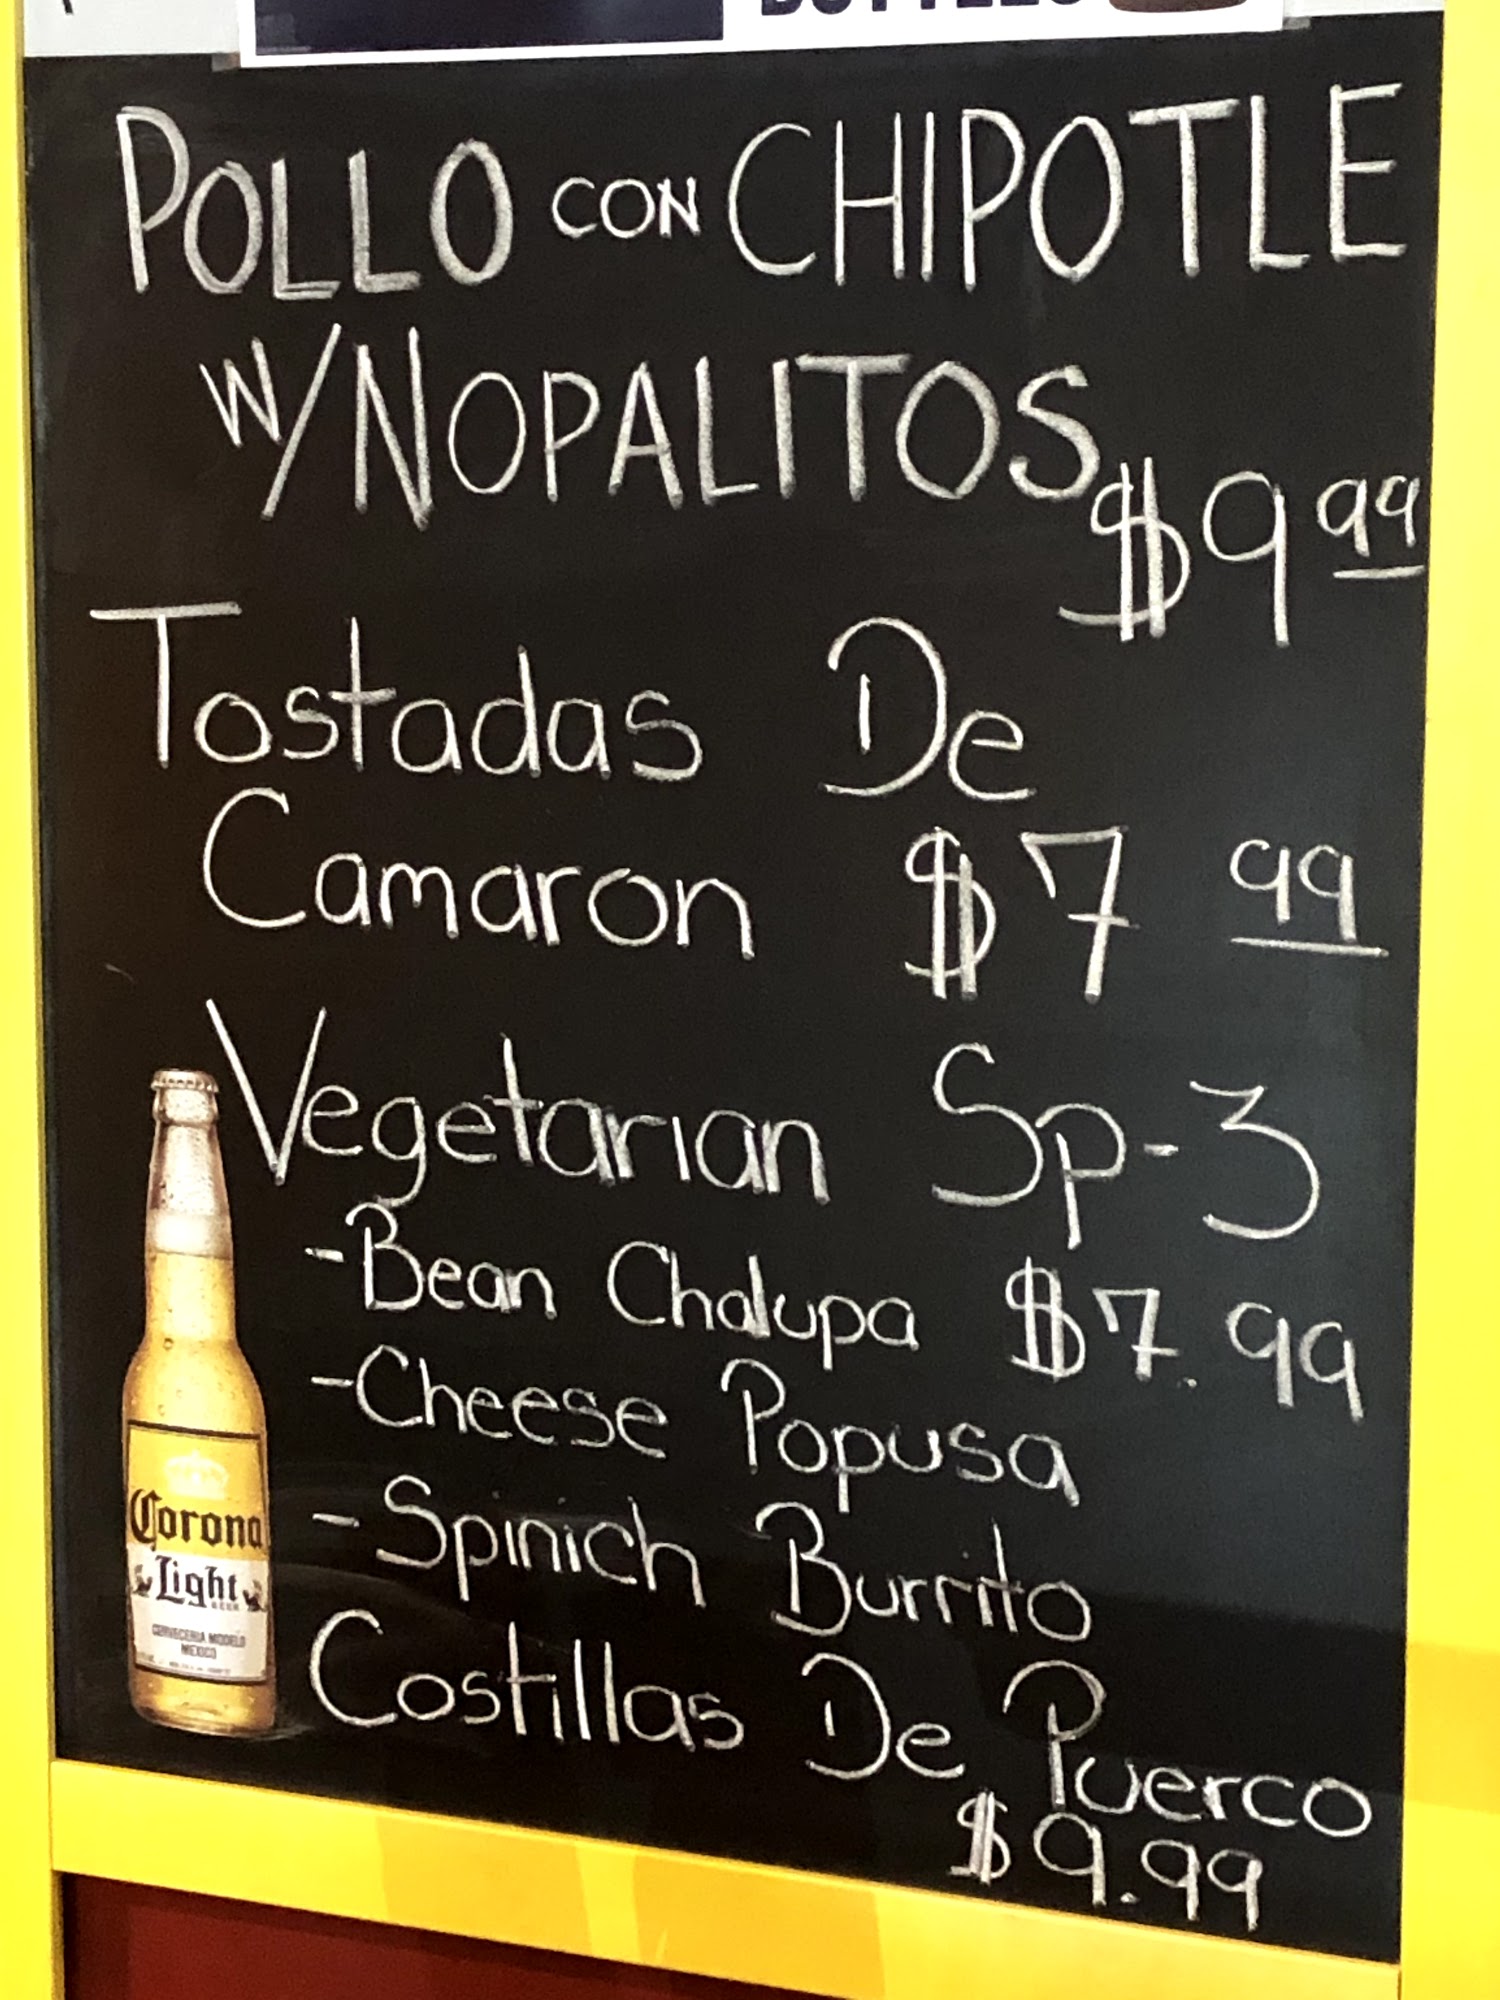 POLLO CON CHIPOTLE
W/NOPALITOS
$9 99
Tostadas De
Camaron $7 99
Vegetarian Sp-3
-Bean Chalupa $7.99
-Cheese Popusa
-Spinich Burrito
Costillas De Puerco
$9.99
Corona
Light
BEER
CERVECERIA MODELO
MEXICO